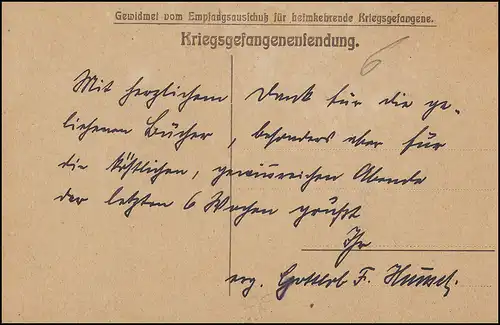 Gewidmet vom Empfangsausschuß für heimkehrende Kriegsgefangene.
Kriegsgefangenensendung.
6
Mit herzlichem Dank für die ge-
liehenen Bücher, besonders aber für
die köstlichen, genussreichen Abende
der letzten 6 Wochen grüßt
Ihr
erg. Gottlob F.